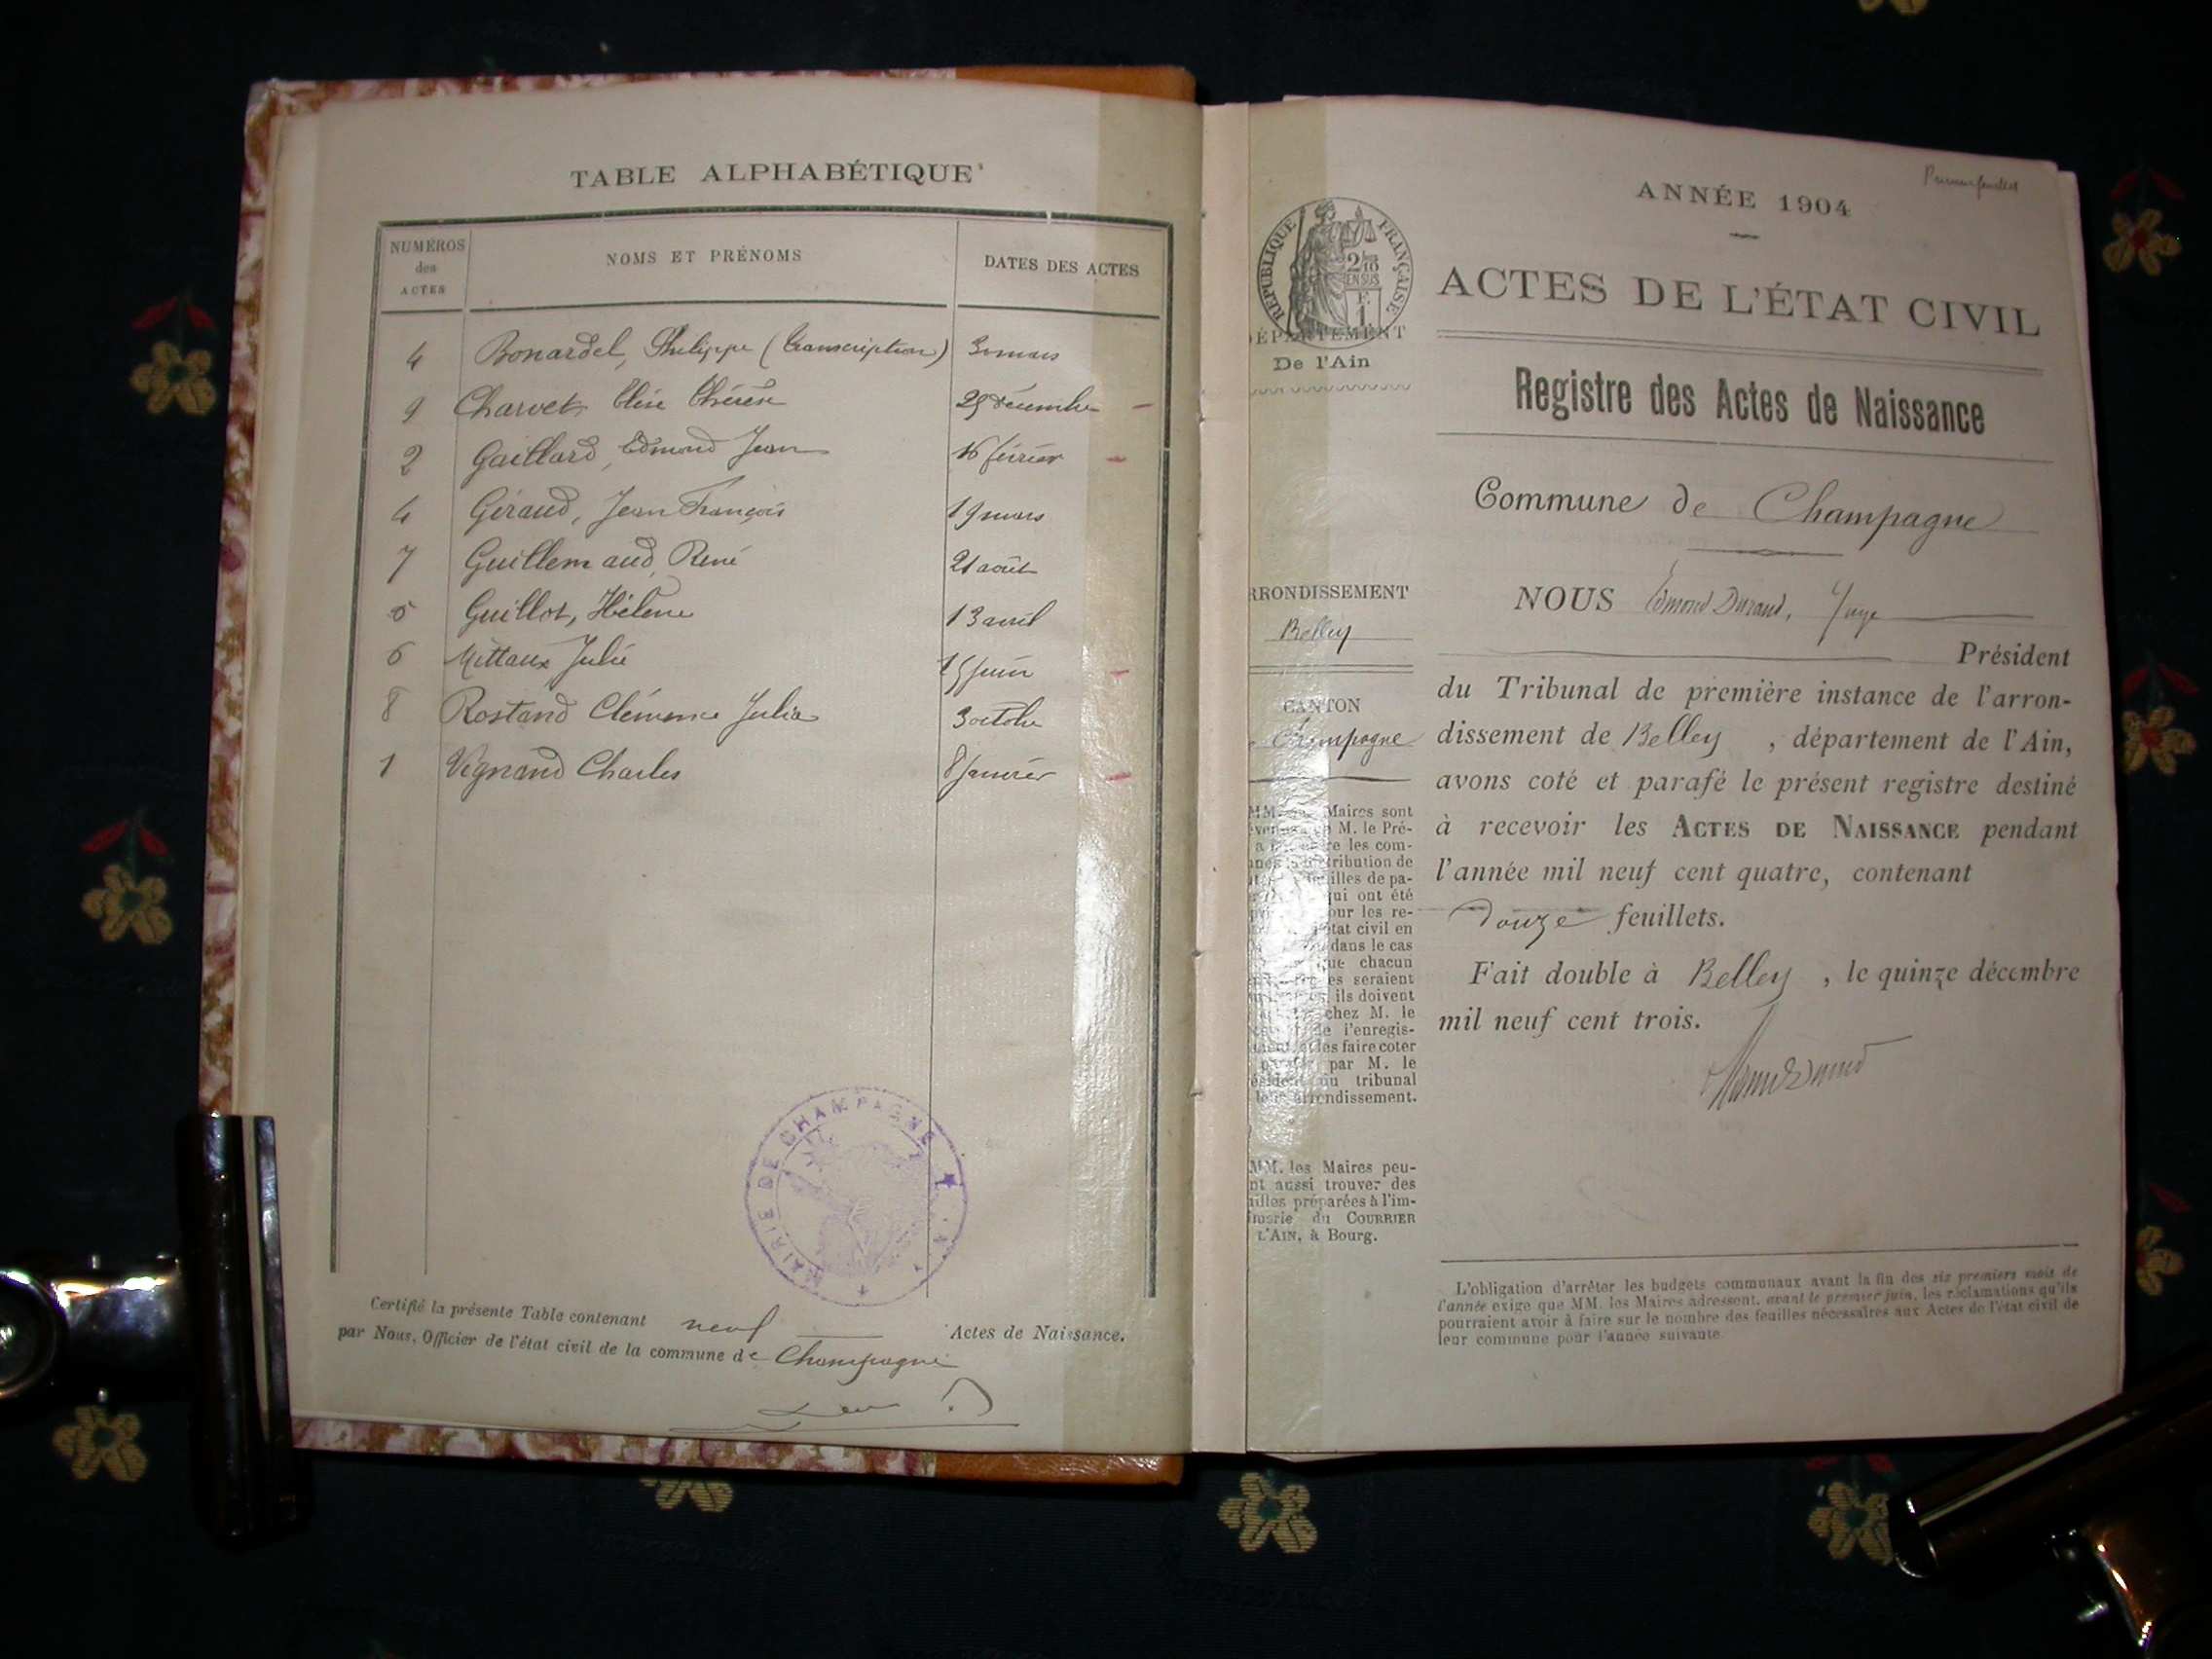 TABLE ALPHABÉTIQUE
NUMÉROS des ACTES
NOMS ET PRÉNOMS
DATES DES ACTES
4 Bonardel, Philippe (transcription)
9 Charvet, Elise Thérèse
2 Gaillard, Edmond Jean 16 février
4 Géraud, Jean François 19 mars
7 Guillemaud, René 21 août
5 Guillot, Hélène 13 avril
6 Mittaux Julie 15 juin
8 Rostand Clémence Julia 3 octobre
1 Vignand Charles 8 janvier
MAIRIE DE CHAMPAGNE
Certifié la présente Table contenant neuf Actes de Naissance.
par Nous, Officier de l'état civil de la commune de Champagne
Premier feuillet
ANNÉE 1904
ACTES DE L'ÉTAT CIVIL
RÉPUBLIQUE FRANÇAISE
2/10 EN SUS
ÉPARTEMENT
De l'Ain
Registre des Actes de Naissance
Commune de Champagne
RRONDISSEMENT
Belley
CANTON
Champagne
NOUS Edmond Durand, Juge
Président
du Tribunal de première instance de l'arron-
dissement de Belley, département de l'Ain,
avons coté et parafé le présent registre destiné
à recevoir les ACTES DE NAISSANCE pendant
l'année mil neuf cent quatre, contenant
douze feuillets.
Fait double à Belley, le quinze décembre
mil neuf cent trois.
Maires sont
M. le Pré-
les com-
tribution de
illes de pa-
ui ont été
our les re-
tat civil en
dans le cas
ue chacun
es seraient
ils doivent
chez M. le
l'enregis-
les faire coter
par M. le
du tribunal
arrondissement.
MM. les Maires peu-
nt aussi trouver des
illes préparées à l'im-
imerie du COURRIER
L'AIN, à Bourg.
L'obligation d'arrêter les budgets communaux avant la fin des six premiers mois de
l'année exige que MM. les Maires adressent, avant le premier juin, les réclamations qu'ils
pourraient avoir à faire sur le nombre des feuilles nécessaires aux Actes de l'état civil de
leur commune pour l'année suivante.